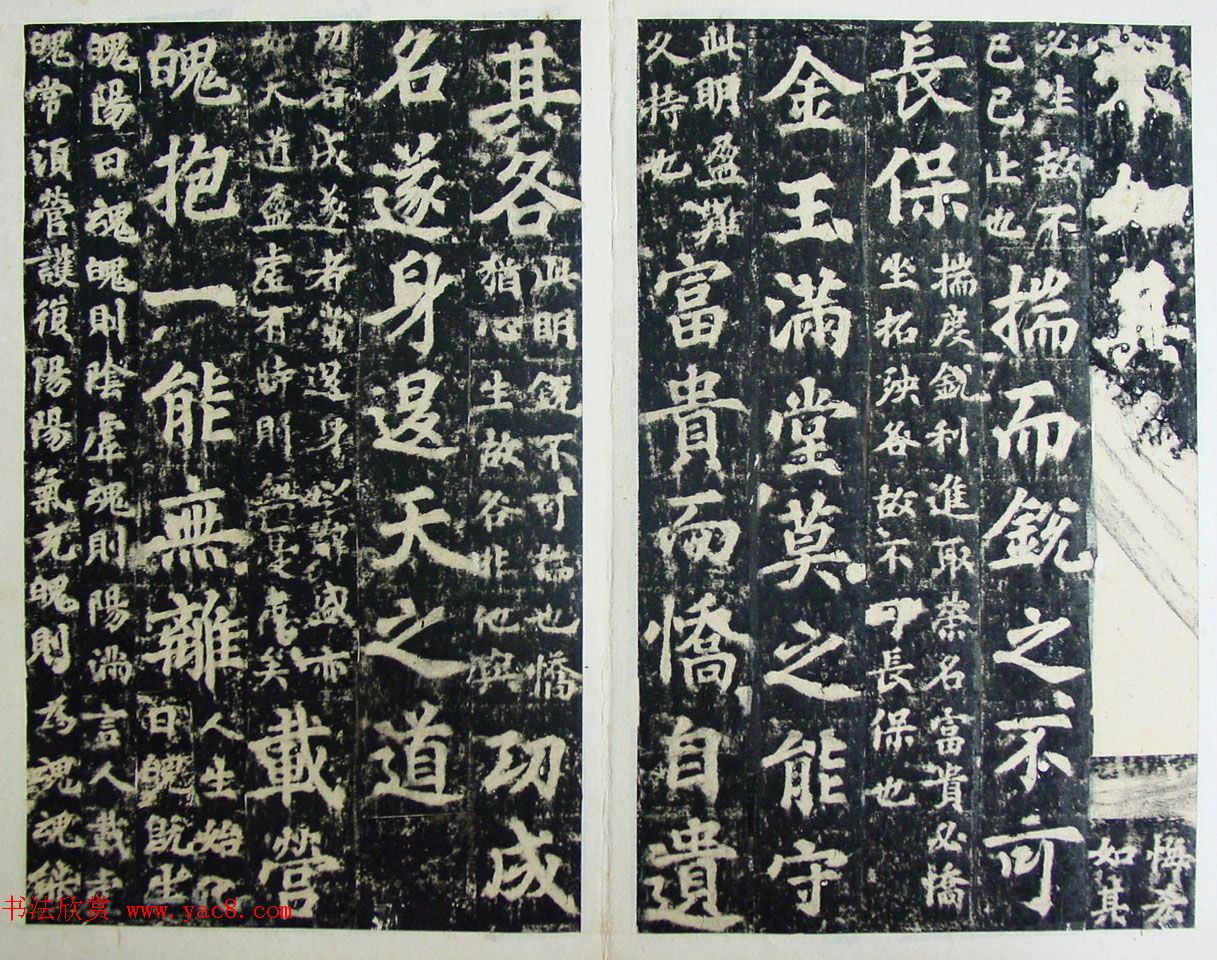 如其
悔
如其
必生故不
已已止也
揣而銳之不可
長保
揣度銳利進取榮名富貴必憍
坐招殃咎故不可長保也
金玉滿堂莫之能守
此明盈難
久持也
富貴而憍自遺
其咎
此明銳不可揣也憍
猶心生故咎非他與
功成
名遂身退天之道
功名成遂者當退身以辭盛亦
如天道盈虛有時則無矣
載營
魄抱一能無離
人生始化
曰魄既生
魄陽曰魂魄則陰虛魂則陽滿言人載虛
魄常須營護復陽陽氣充魄則為魂魂能
书法欣赏 www.yac8.com